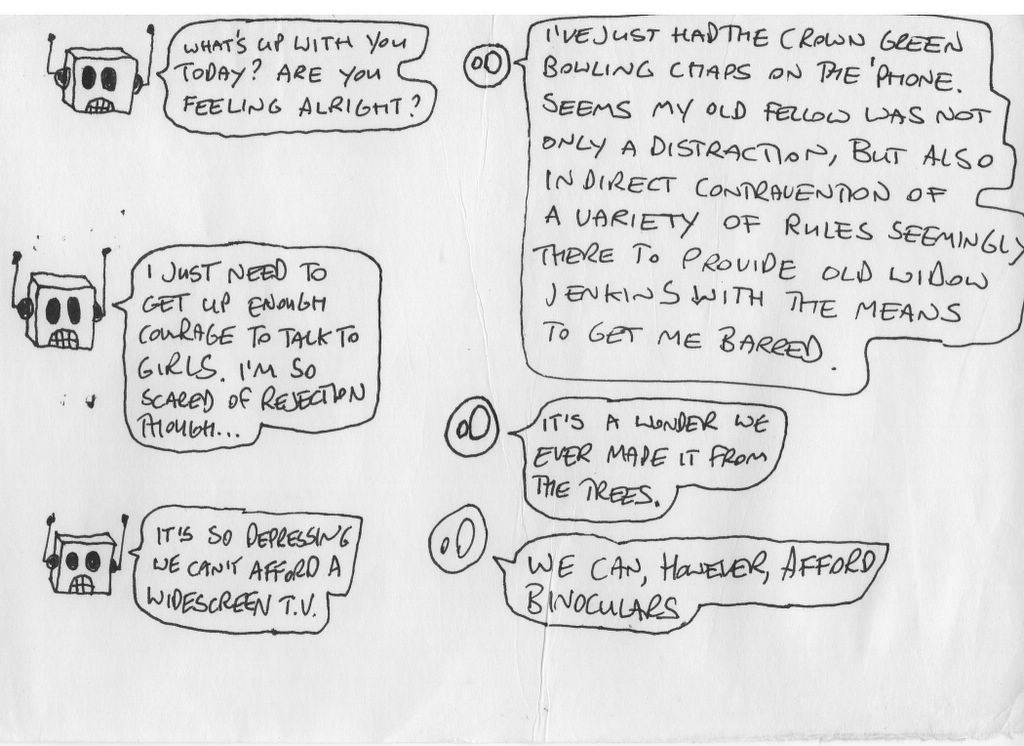 WHAT'S UP WITH YOU
TODAY? ARE YOU
FEELING ALRIGHT?
I'VE JUST HAD THE CROWN GREEN
BOWLING CHAPS ON THE 'PHONE.
SEEMS MY OLD FELLOW WAS NOT
ONLY A DISTRACTION, BUT ALSO
IN DIRECT CONTRAVENTION OF
A VARIETY OF RULES SEEMINGLY
THERE TO PROVIDE OLD WIDOW
JENKINS WITH THE MEANS
TO GET ME BARRED.
I JUST NEED TO
GET UP ENOUGH
COURAGE TO TALK TO
GIRLS. I'M SO
SCARED OF REJECTION
THOUGH...
IT'S A WONDER WE
EVER MADE IT FROM
THE TREES.
IT'S SO DEPRESSING
WE CAN'T AFFORD A
WIDESCREEN T.V.
WE CAN, HOWEVER, AFFORD
BINOCULARS